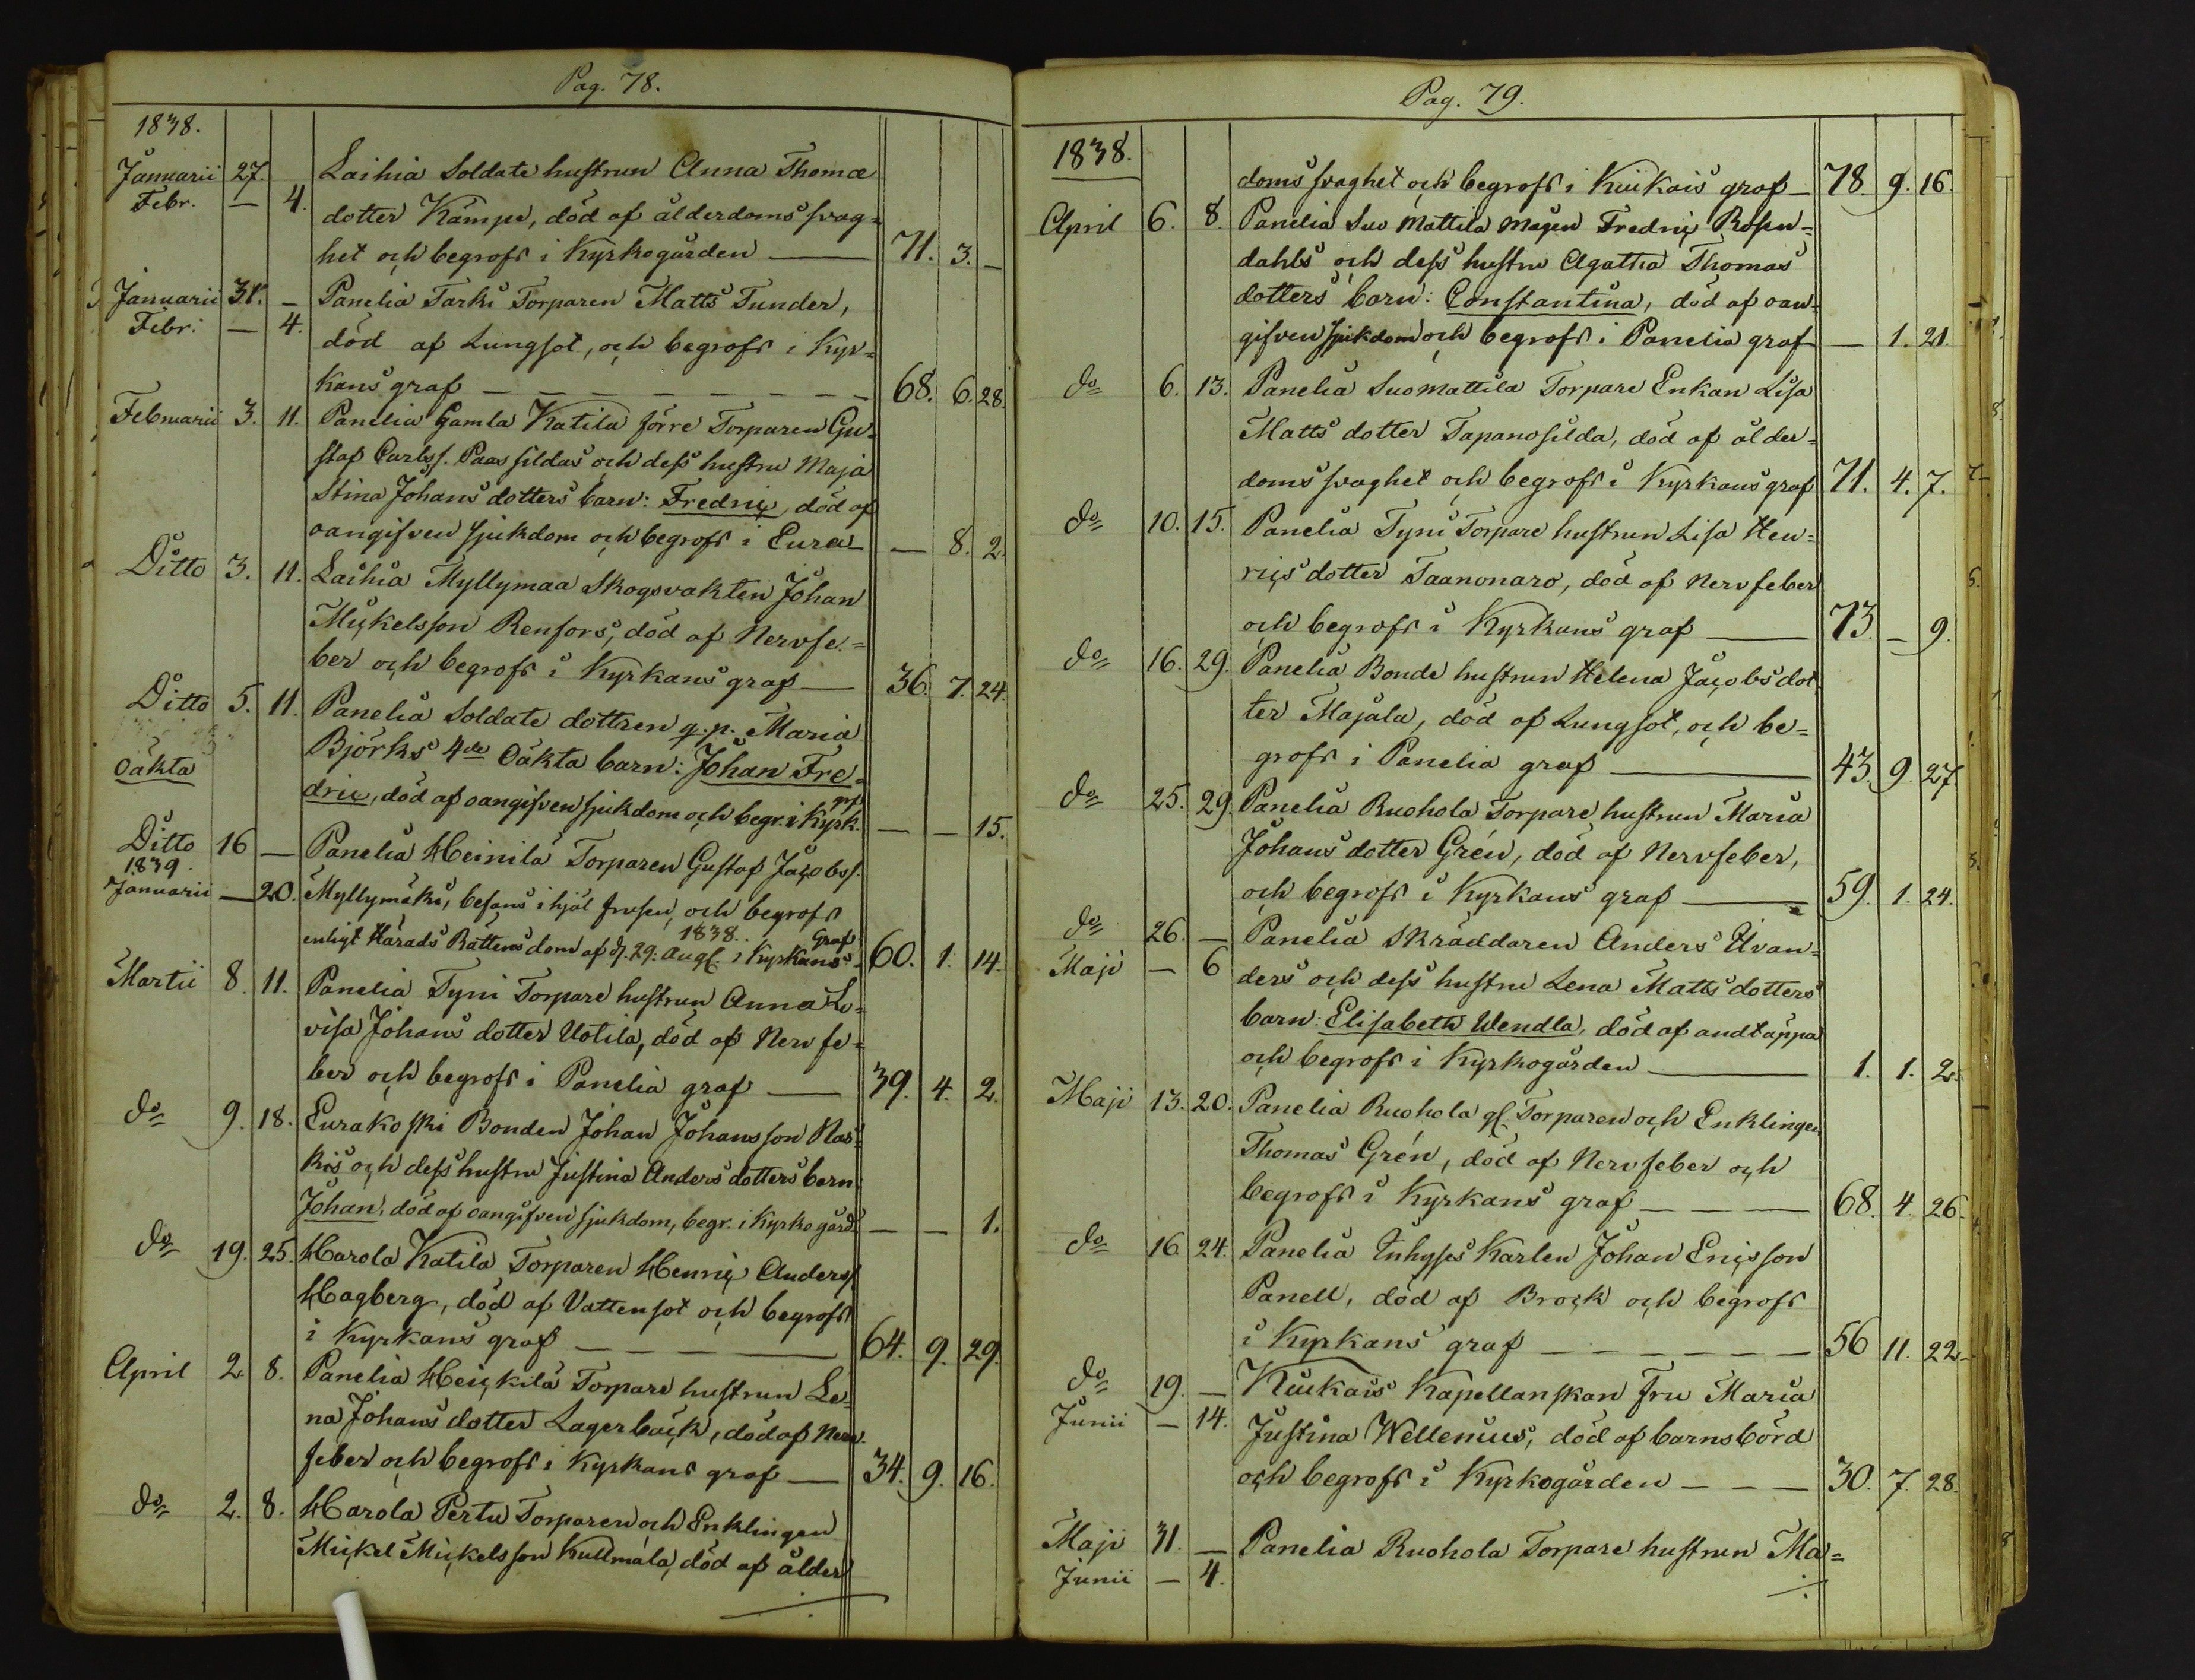 Pag. 78.
1838.
Januarii 27. Laihia Soldate hustrun Anna Thomæ
Febr. — 4. dotter Kämpe, död af ålderdoms svag=
het och begrofs i Kyrkogården — 71. 3. —
Januarii 31. — Panelia Tarki Torparen Matts Tunder,
Febr. — 4. död af Lungsot, och begrofs i Kyr=
kans graf — — — 68. 6. 28.
Februarii 3. 11. Panelia Gamla Katila förre Torparen Gu=
staf Carlss. Paassildas och dess hustru Maja
Stina Johans dotters barn: Fredric, död af
oangifven sjukdom och begrofs i Eura — 8. 2.
Ditto 3. 11. Laihia Myllymaa Skogsvakten Johan
Mickelsson Renfors, död af Nervfe=
ber och begrofs i Kyrkans graf — 36. 7. 24.
Ditto 5. 11. Panelia Soldate dottren q.p. Maria
Björks 4de Oäkta barn: Johan Fre=
Oäkta
dric, död af oangifven sjukdom och begr. i Kyrk. grf — — 15.
Ditto 16 — Panelia Heinilä Torparen Gustaf Jacobss.
1839.
Januarii — 20. Myllymäki, befans ihjäl frusen, och begrofs
enligt Härads Rättens dom af d. 29. Aug. 1838. i Kyrkans Graf 60. 1. 14.
Martii 8. 11. Panelia Tyni Torpare hustrun Anna Lo=
visa Johans dotter Uotila, död af Nervfe=
ber och begrofs i Panelia graf — 39. 4. 2.
do 9. 18. Eurakoski Bonden Johan Johansson Nas=
kis och dess hustru Justina Anders dotters barn
Johan, död af oangifven sjukdom, begr. i Kyrkogård. — — 1.
do 19. 25. Harola Katila Torparen Henric Anderss.
Hagberg, död af Vattensot och begrofs
i Kyrkans graf — — — 64. 9. 29.
April 2. 8. Panelia Heickilä Torpare hustrun Le=
na Johans dotter Lagerbäck, död af Nerv=
feber och begrofs i Kyrkans graf — 34. 9. 16.
do 2. 8. Harola Pertu Torparen och Enklingen
Mickel Mickelsson Kullmala, död af ålder
Pag. 79.
1838.
doms svaghet och begrofs i Kiukais graf — 78. 9. 16.
April 6. 8. Panelia Suo Mattila Mågen Fredric Rosen=
dahls och dess hustru Agatha Thomas
dotters barn: Constantina, död af oan=
gifven sjukdom och begrofs i Panelia graf — 1. 21.
do 6. 13. Panelia Suomattila Torpare Enkan Lisa
Matts dotter Tapanosilda, död af ålder=
doms svaghet och begrofs i Kyrkans graf 71. 4. 7.
do 10. 15. Panelia Tyni Torpare hustrun Lisa Hen=
rics dotter Taanonaro, död af Nervfeber
och begrofs i Kyrkans graf — 73. — 9.
do 16. 29. Panelia Bonde hustrun Helena Jacobs dot
ter Majala, död af Lungsot, och be=
grofs i Panelia graf — 43. 9. 27.
do 25. 29. Panelia Ruohola Torpare hustrun Maria
Johans dotter Grén, död af Nervfeber,
och begrofs i Kyrkans graf — 59. 1. 24.
do 26. — Panelia Skräddaren Anders Uvan=
Maji — 6 ders och dess hustru Lena Matts dotters
barn: Elisabeth Wendla, död af andtäppa
och begrofs i Kyrkogården — 1. 1. 2.
Maji 13. 20. Panelia Ruohola gl. Torparen och Enklingen
Thomas Grén, död af Nervfeber och
begrofs i Kyrkans graf — — 68. 4. 26.
do 16 24. Panelia Inhyses Karlen Johan Ericsson
Panell, död af Brock och begrofs
i Kyrkans graf — — — 56 11. 22.
do 19. — Kiukais Kapellanskan Fru Maria
Junii — 14. Justina Wellenius, död af barnsbörd
och begrofs i Kyrkogården — — — 30. 7. 28.
Maji 31. — Panelia Ruohola Torpare hustrun Ma=
Junii — 4.